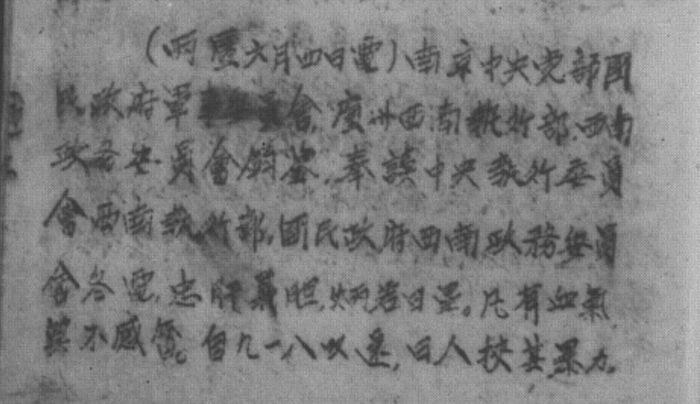 (两廣六月四日電)南京中央党部國
民政府軍事委員會,廣州西南執行部,西南
政务委員會鈞鉴,奉讀中央執行委員
會西南執行部,國民政府西南政務委員
會各電,忠肝義胆,炳若日星。凡有血氣,
莫不感奮。自九一八以還,日人挾其暴力。